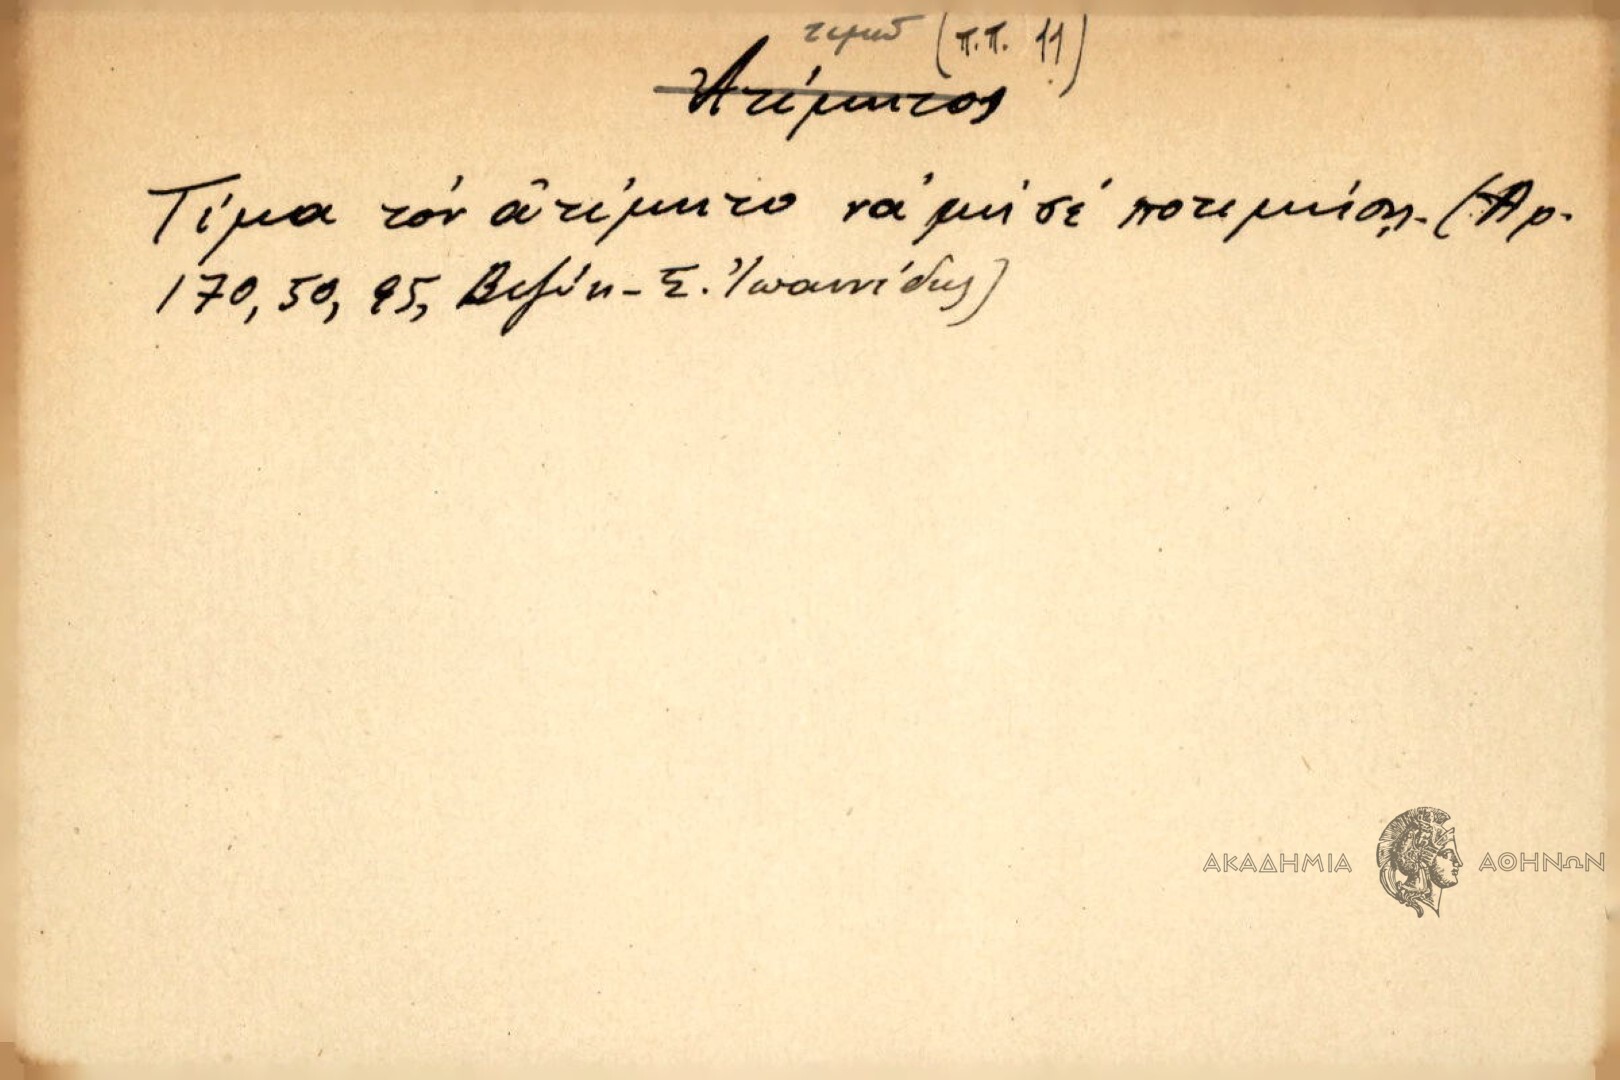 τιμῶ (π.π. 11)
Ἀτίμητος
Τίμα τόν ἀτίμητο νά μή σέ ποτιμήσῃ. (Ἀρ.
170, 50, 95, Βιζύη - Σ. Ἰωαννίδης)
ΑΚΑΔΗΜΙΑ ΑΘΗΝΩΝ